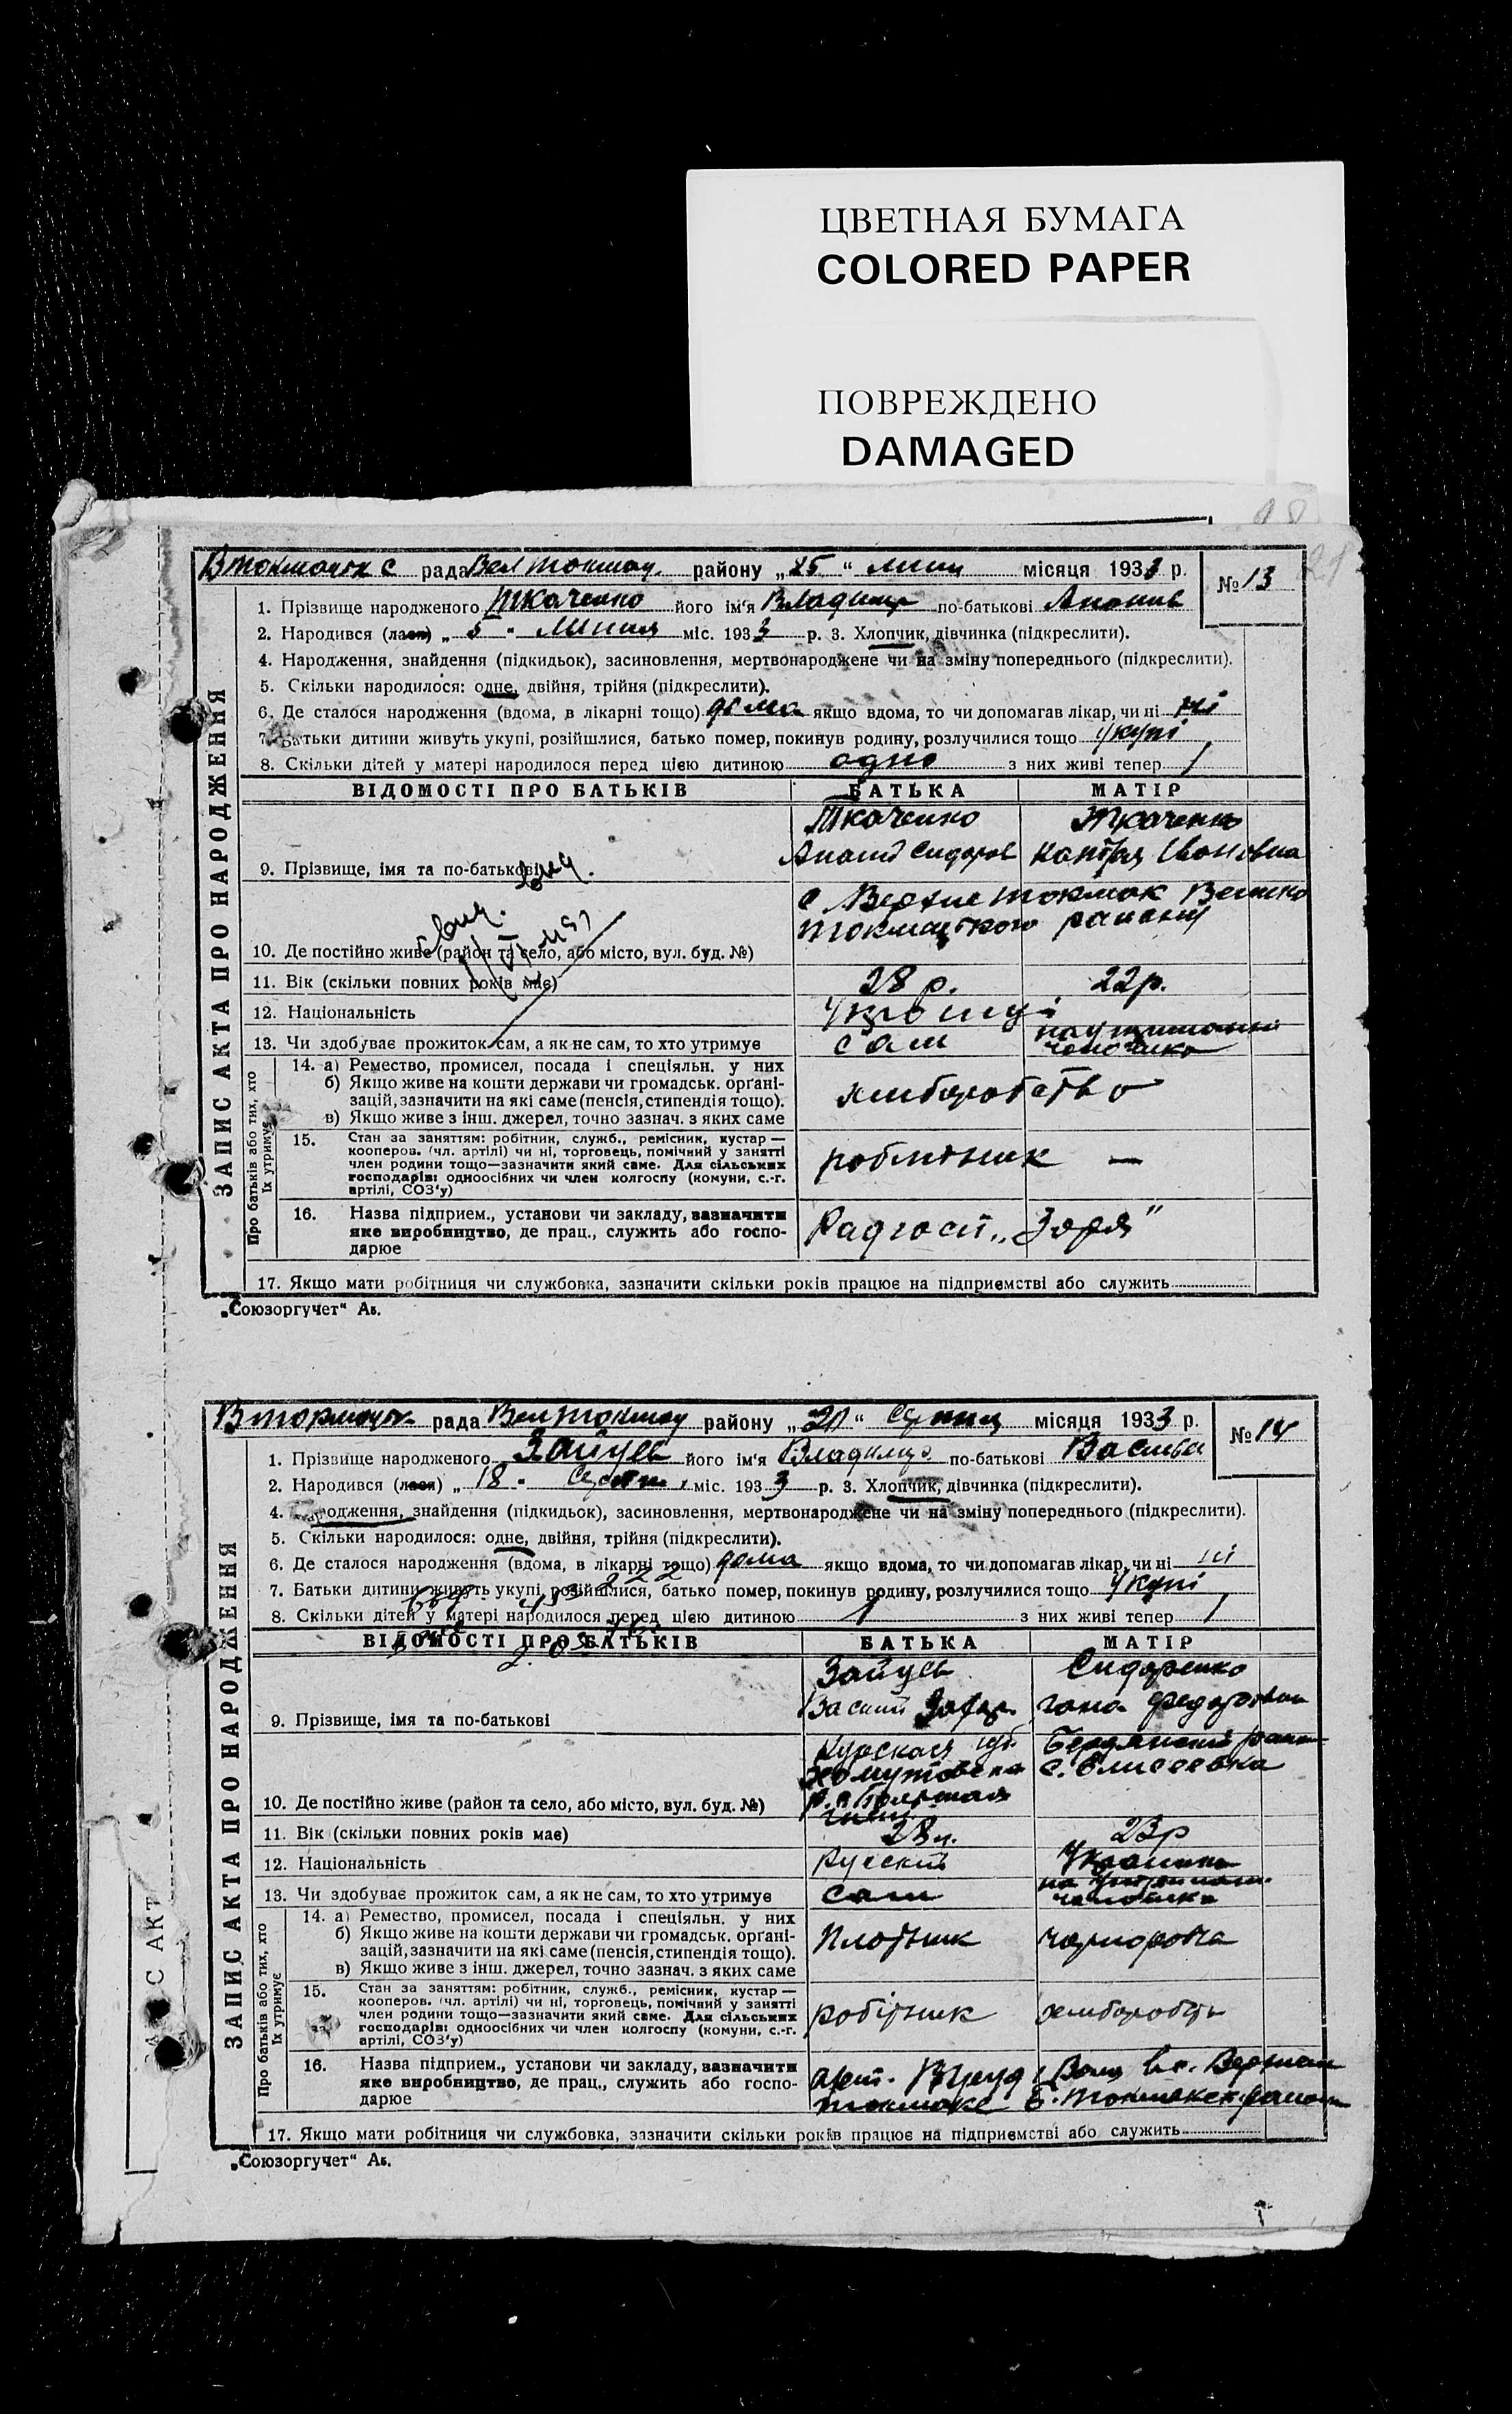 ЦВЕТНАЯ БУМАГА
COLORED PAPER
ПОВРЕЖДЕНО
DAMAGED
рада Вел токмац. району „25“ липц місяця 1933 р.
№ 13
1. Прізвище народженого Ткаченко його ім'я Владимир по-батькові
2. Народився (лася) „5 " липця міс. 1933 р. 3. Хлопчик, дівчинка (підкреслити).
4. Народження, знайдення (підкидьок), засиновлення, мертвонароджене чи на зміну попереднього (підкреслити).
5. Скільки народилося: одне, двійня, трійня (підкреслити).
6. Де сталося народження (вдома, в лікарні тощо) дома якщо вдома, то чи допомагав лікар, чи ні ні
7. Батьки дитини живуть укупі, розійшлися, батько помер, покинув родину, розлучилися тощо укупі
8. Скільки дітей у матері народилося перед цією дитиною одно з них живі тепер 1
ЗАПИС АКТА ПРО НАРОДЖЕННЯ
ВІДОМОСТІ ПРО БАТЬКІВ БАТЬКА МАТІР
Ткаченко Ткаченко
9. Прізвище, імя та по-батькові Сидоров Івановна
с Верхне токмак Велико
токмацького району
10. Де постійно живе (район та село, або місто, вул. буд. №)
11. Вік (скільки повних років має) 28 р. 22р.
12. Національність
13. Чи здобуває прожиток сам, а як не сам, то хто утримує сам
Про батьків або тих, хто їх утримує
14. а) Ремество, промисел, посада і спеціяльн. у них
б) Якщо живе на кошти держави чи громадськ. організацій, зазначити на які саме (пенсія, стипендія тощо).
в) Якщо живе з інш. джерел, точно зазнач. з яких саме
хлиборобство
15. Стан за заняттям: робітник, служб., ремісник, кустар —
кооперов. (чл. артілі) чи ні, торговець, помічний у занятті
член родини тощо—зазначити який саме. Для сільських
господарів: одноосібних чи член колгоспу (комуни, с.-г.
артілі, СОЗ'у)
робитник —
16. Назва підприєм., установи чи закладу, зазначити
яке виробництво, де прац., служить або госпо-
дарює
Радгосп „Зоря"
17. Якщо мати робітниця чи службовка, зазначити скільки років працює на підприємстві або служить
„Союзоргучет“ Ав.
рада Вел токмац району „20“ серпня місяця 1933 р.
№ 14
1. Прізвище народженого Зайцев його ім'я Владимир по-батькові
2. Народився (лася) „18 " серпн міс. 1933 р. 3. Хлопчик, дівчинка (підкреслити).
4. Народження, знайдення (підкидьок), засиновлення, мертвонароджене чи на зміну попереднього (підкреслити).
5. Скільки народилося: одне, двійня, трійня (підкреслити).
6. Де сталося народження (вдома, в лікарні тощо) дома якщо вдома, то чи допомагав лікар, чи ні ні
7. Батьки дитини живуть укупі, розійшлися, батько помер, покинув родину, розлучилися тощо укупі
8. Скільки дітей у матері народилося перед цією дитиною 1 з них живі тепер 1
ЗАПИС АКТА ПРО НАРОДЖЕННЯ
ВІДОМОСТІ ПРО БАТЬКІВ БАТЬКА МАТІР
Зайцев Сидоренко
9. Прізвище, імя та по-батькові Василий Захар. Федоровна
Курская губ. Бердянский район
Хомутовска с. Елисеевка
10. Де постійно живе (район та село, або місто, вул. буд. №)
11. Вік (скільки повних років має) 28 23р
12. Національність Русский Украинка
13. Чи здобуває прожиток сам, а як не сам, то хто утримує сам чоловика
Про батьків або тих, хто їх утримує
14. а) Ремество, промисел, посада і спеціяльн. у них
б) Якщо живе на кошти держави чи громадськ. організацій, зазначити на які саме (пенсія, стипендія тощо).
в) Якщо живе з інш. джерел, точно зазнач. з яких саме
Плотник
15. Стан за заняттям: робітник, служб., ремісник, кустар —
кооперов. (чл. артілі) чи ні, торговець, помічний у занятті
член родини тощо—зазначити який саме. Для сільських
господарів: одноосібних чи член колгоспу (комуни, с.-г.
артілі, СОЗ'у)
робітник хлибороб
16. Назва підприєм., установи чи закладу, зазначити
яке виробництво, де прац., служить або госпо-
дарює
токмаке Б. токмакск. район
17. Якщо мати робітниця чи службовка, зазначити скільки років працює на підприємстві або служить
„Союзоргучет“ Ав.
АКТ